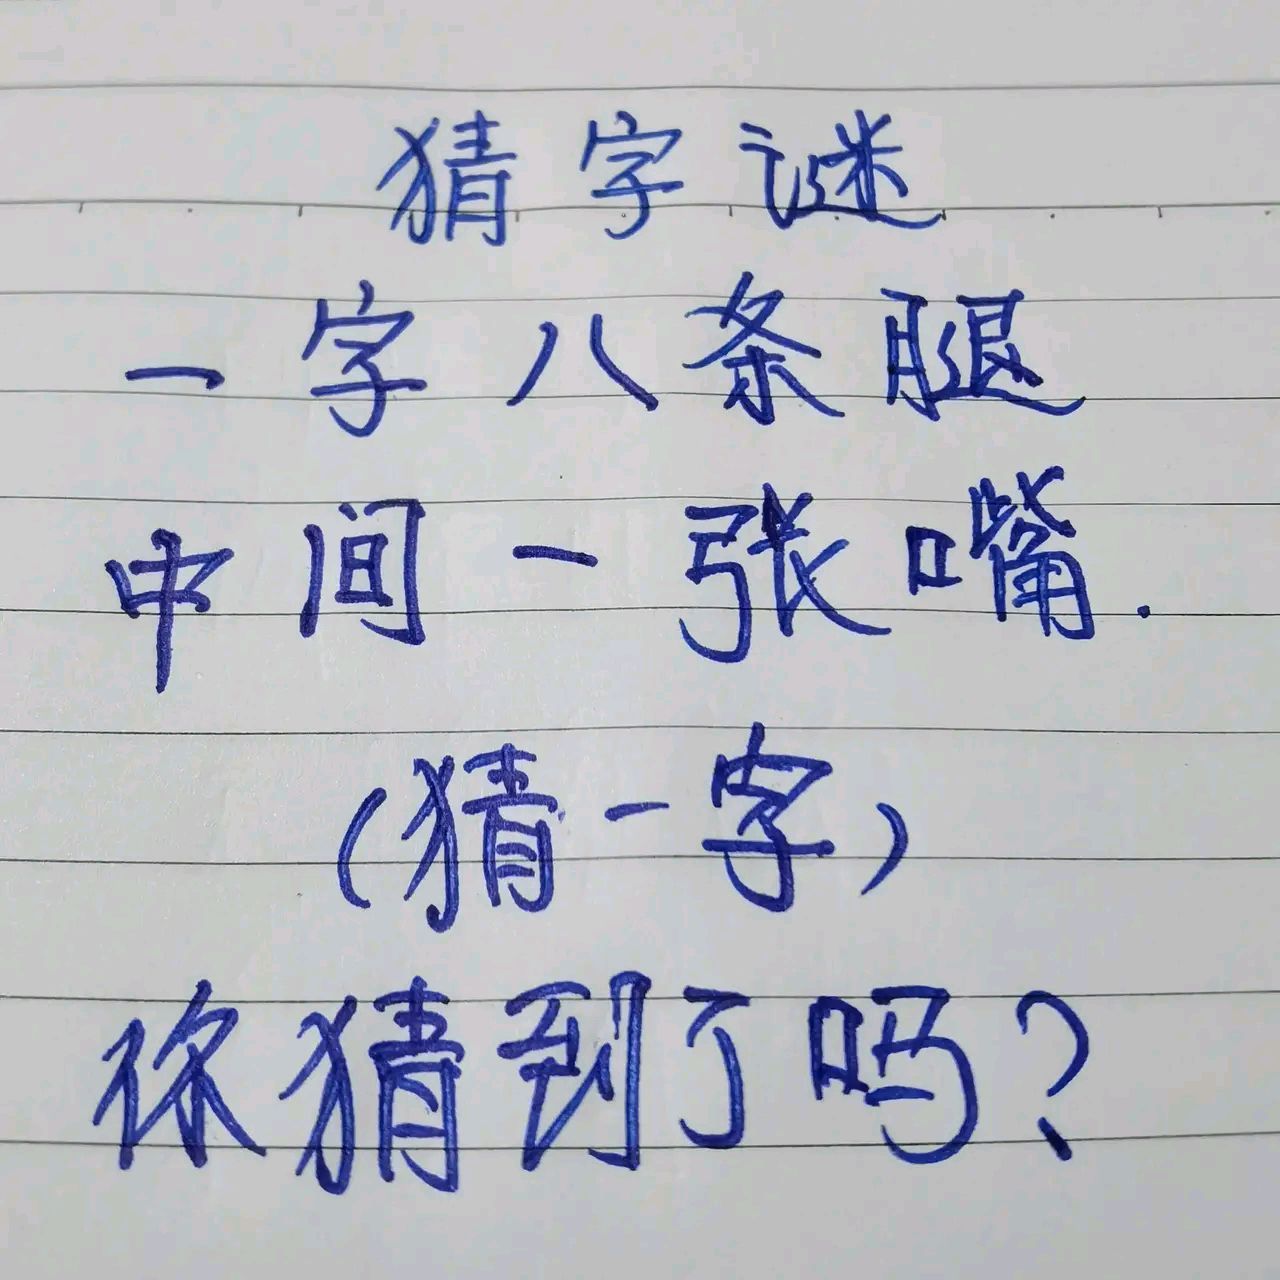 猜字谜
一字八条腿
中间一张嘴.
(猜一字)
你猜到了吗?